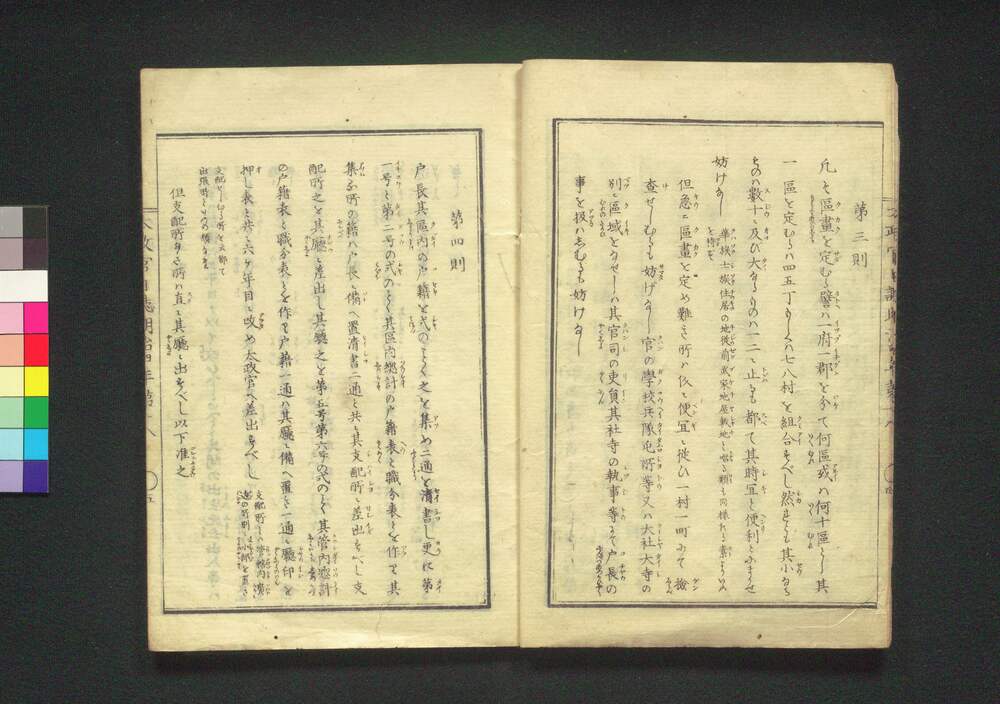 第三則
凡ソ區畫ヲ定ムル譬ハ一府一郡ヲ分テ何區或ハ何十區トシ其
一區ヲ定ムルハ四五丁モシクハ七八村ヲ組合スベシ然レトモ其小ナル
モノハ數十ニ及ヒ大ナルモノハ一二ニ止ルモ都テ其時宜ト便利トニマカセ
妨ケナシ
華族士族住居ノ地從前武家地屋敷地ト唱ル類モ同樣タル素ヨリ
ヲ待タス
但急ニ區畫ヲ定メ難キ所ハ仮ニ便宜ニ從ヒ一村一町ニテ撿
査セシムルモ妨ケナシ官ノ學校兵隊屯所等又ハ大社大寺ノ
別ニ區域ヲナセシハ其官司ノ吏員其社寺ノ執事等ニテ戸長ノ
事ヲ扱ハシムルモ妨ケナシ
第四則
戸長其區内ノ戸籍ヲ式ノコトク之ヲ集メ二通ヲ清書シ更ニ第
一号ト第二号ノ式ノコトク其區内總計ノ戸籍表ト職分表トヲ作リ其
集ル所ノ籍ハ戸長ニ備ヘ置清書二通ト共ニ其支配所ニ差出スベシ支
配所之ヲ其廳ニ差出シ其廳之ヲ第五号第六号ノ式ノコトク其管内總計
ノ戸籍表ト職分表トヲ作リ戸籍一通ハ其廳ニ備ヘ置キ一通ニ廳印ヲ
押シ表ト共ニ六ケ年目ニ改メ太政官ヘ差出スベシ
但支配所ナキ所ハ直ニ其廳ニ出スベシ以下准之